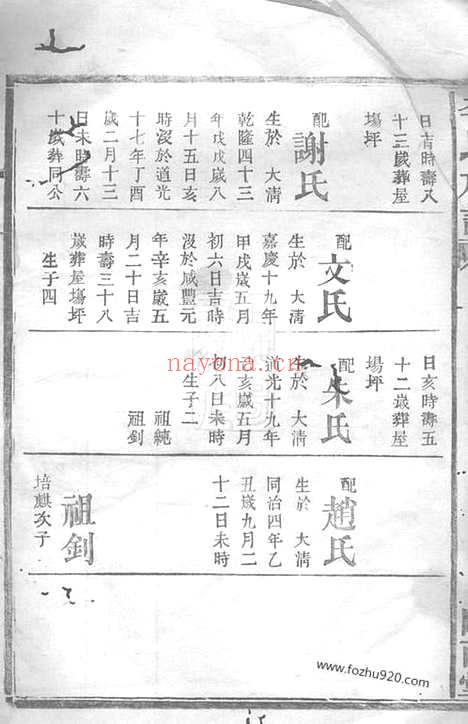 日酉時壽八
十三歲葬屋
塲坪
配謝氏
生於 大清
乾隆四十三
年戊戌歲八
月十五日亥
時沒於道光
十七年丁酉
歲二月十三
日未時壽六
十歲葬同公
配文氏
生於 大清
嘉慶十九年
甲戌歲五月
初六日吉時
沒於咸豐元
年辛亥歲五
月二十日吉
時壽三十八
歲葬屋塲坪
生子四
日亥時壽五
十二歲葬屋
塲坪
配朱氏
生於 大清
道光十九年
亥歲五月
初八日未時
生子二
祖純
祖釗
配趙氏
生於 大清
同治四年乙
丑歲九月二
十二日未時
祖釗
培麒次子
nayona.cn
www.fozhu920.com